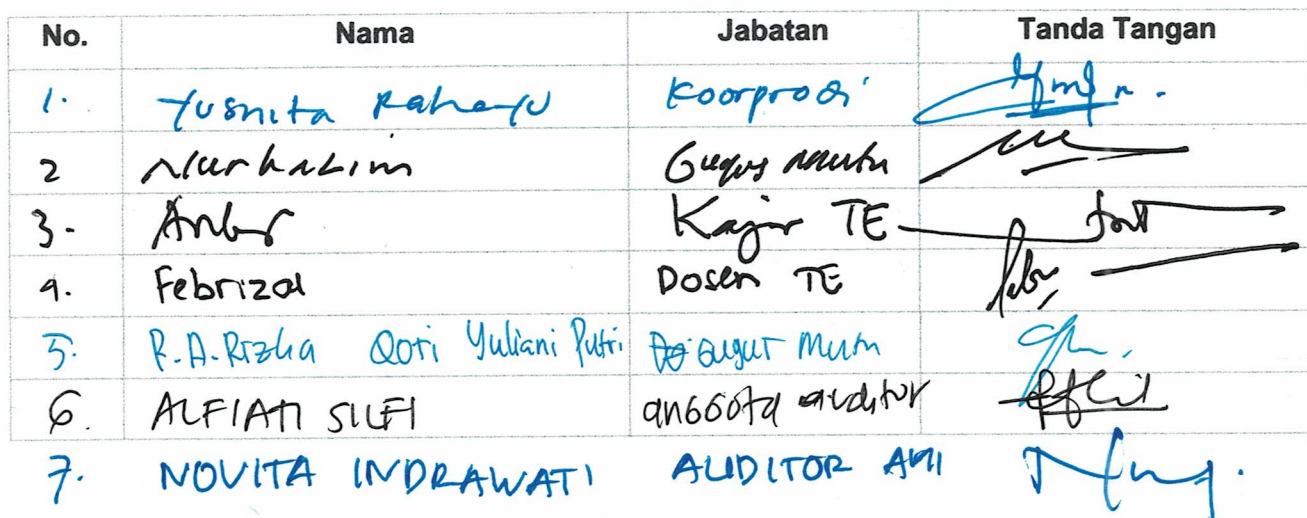 No. Nama Jabatan Tanda Tangan
1. Yusnita Rahayu Koorprodi
2 Nurhalim Gugus Mutu
3. Kajur TE
4. Febrizal Dosen TE
5. R.A.Rizka Qori Yuliani Putri Gugus Mutu
6. ALFIATI SILFI anggota auditor
7. NOVITA INDRAWATI AUDITOR AMI